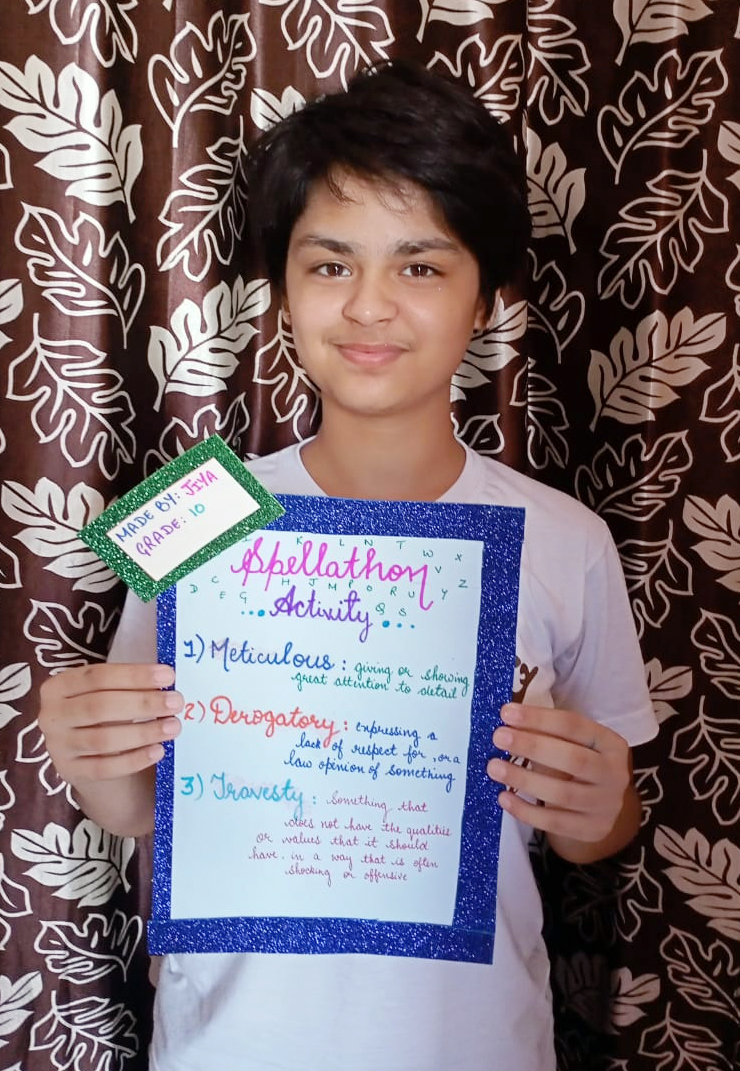 MADE BY: JIYA
GRADE: 10
K L N T W X
D C E G H J M O R U V Y Z
Q S
Spellathon
Activity
1) Meticulous : giving or showing
great attention to detail
2) Derogatory : expressing a
lack of respect for, or a
law opinion of something
3) Travesty : something that
does not have the qualities
or values that it should
have, in a way that is often
shocking or offensive